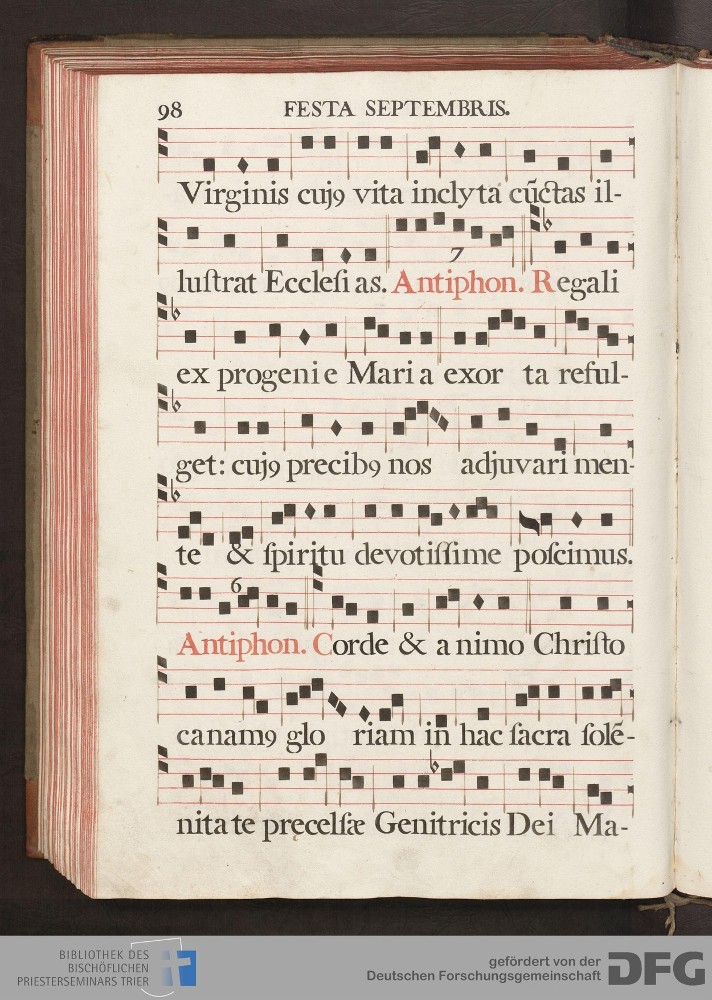 98 FESTA SEPTEMBRIS.
Virginis cujꝰ vita inclyta cūctas il-
7
luſtrat Eccleſi as. Antiphon. Regali
ex progeni e Mari a exor ta reful-
get: cujꝰ precibꝰ nos adjuvari men-
te & ſpiritu devotiſſime poſcimus.
6
Antiphon. Corde & a nimo Chriſto
canamꝰ glo riam in hac ſacra ſolē-
nita te pręcelſæ Genitricis Dei Ma-
BIBLIOTHEK DES
BISCHÖFLICHEN
PRIESTERSEMINARS TRIER
gefördert von der
Deutschen Forschungsgemeinschaft
DFG